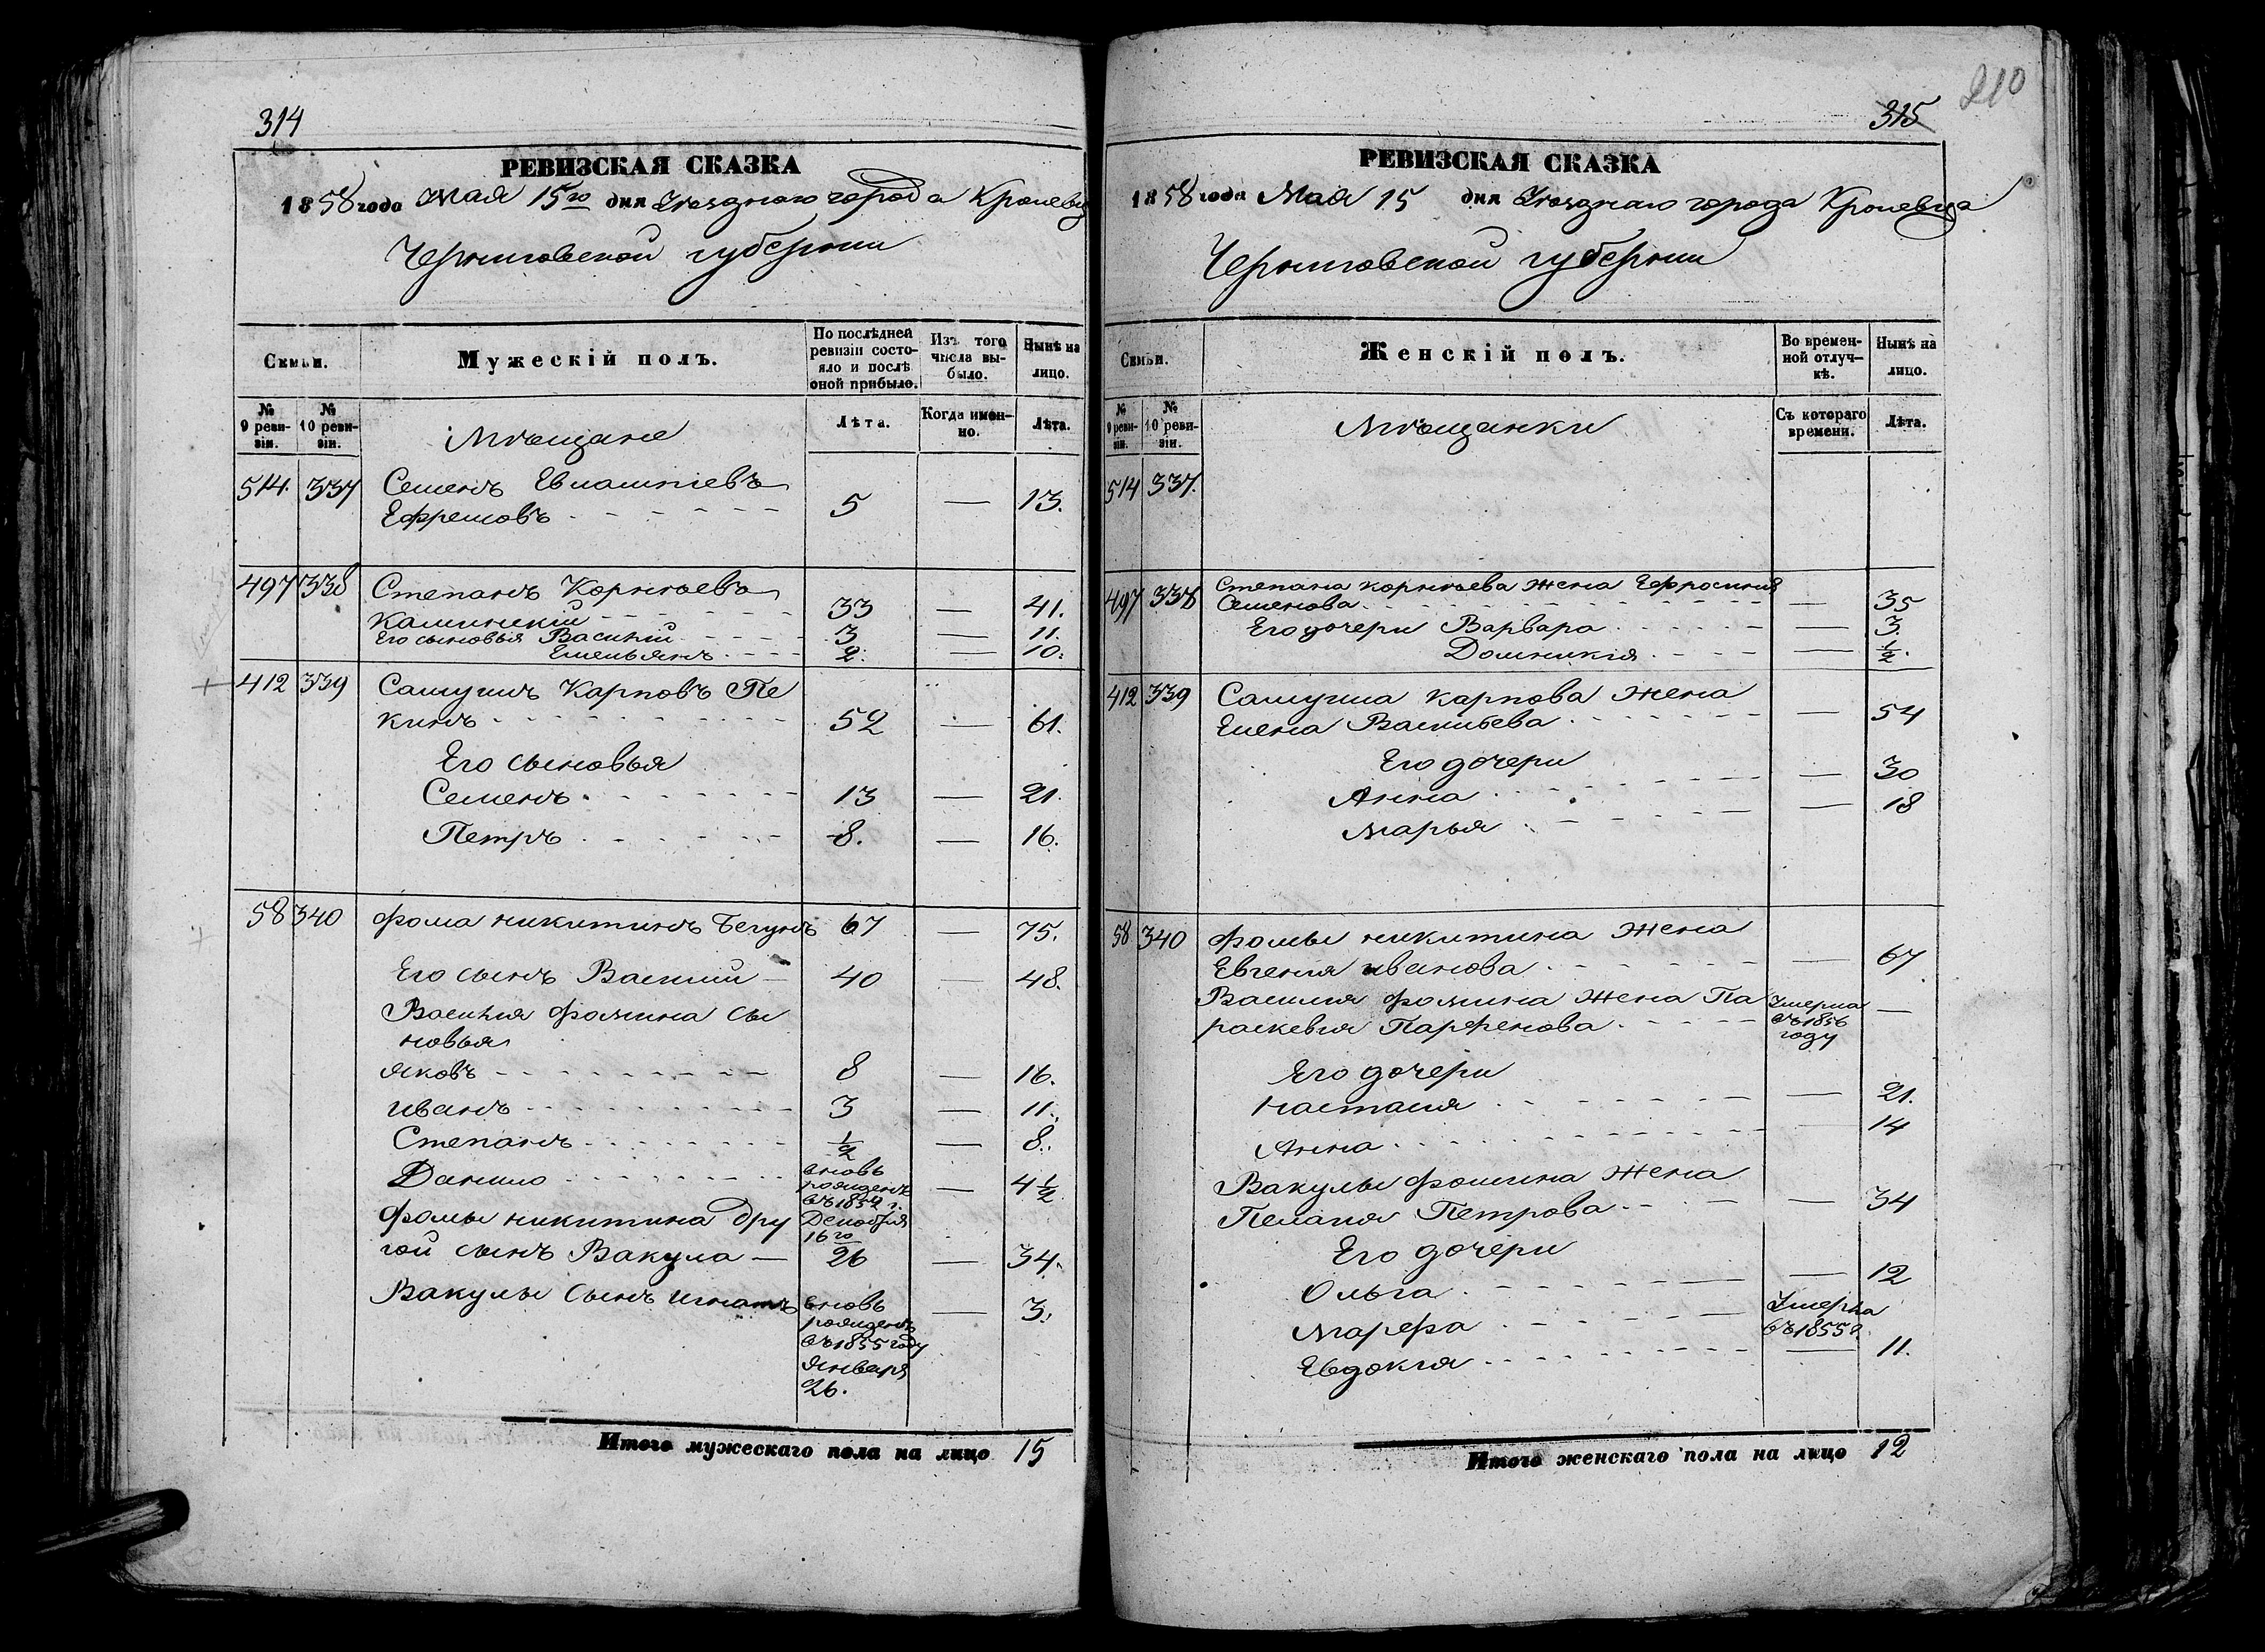 314
РЕВИЗСКАЯ СКАЗКА
1858 года Мая 15го дня Уѣзднаго города Кролевца
Черниговской губерніи
Семьи.
Мужескій полъ.
По послѣдней ревизіи состояло и послѣ оной прибыло.
Изъ того числа выбыло.
Нынѣ на лицо.
№ 9 ревизіи.
№ 10 ревизіи.
Мѣщане
Лѣта.
Когда именно.
Лѣта.
514. 337 Семенъ Евлампіевъ
Ефремовъ 5 — 13.
497 338 Степанъ Корнѣевъ
Калинскій 33 — 41.
Его сыновья Василій 3 — 11.
Емельянъ 2. — 10.
412 339 Самуилъ Карповъ Пе
кинъ 52 — 61.
Его сыновья
Семенъ 13 — 21.
Петръ 8. — 16.
58 340 Фома Никитинъ Бегунъ 67 — 75.
Его сынъ Василій — 40 — 48.
Василия Фомина сы
новья
Яковъ 8 — 16.
Иванъ 3 — 11.
Степанъ 1/2 — 8.
Данило вновь рожденъ въ 1852 г. Декабря 16го — 4 1/2
Фомы Никитина дру
гой сынъ Вакула — 26 — 34.
Вакулы сынъ Игнатъ вновь рожденъ въ 1855 году Января 26. — 3.
Итого мужескаго пола на лицо 15
210
315
РЕВИЗСКАЯ СКАЗКА
1858 года Мая 15 дня Уѣзднаго города Кролевца
Черниговской губерніи
Семьи.
Женскій полъ.
Во временной отлучкѣ.
Нынѣ на лицо.
№ 9 ревизіи.
№ 10 ревизіи.
Мѣщанки
Съ котораго времени.
Лѣта.
514 337.
497 338 Степана Корнѣева жена Ефросинія
Семенова — 35
Его дочери Варвара — 3.
Домникія — 1/2.
412 339 Самуила Карпова жена
Елена Васильева — 54
Его дочери
Анна — 30
Марья — 18
58 340 Фомы Никитина жена
Евгенія Иванова — 67
Василия Фомина жена Па
раскевия Парфенова Умерла въ 1856 году —
Его дочери
Настасия — 21.
Анна 14
Вакулы Фомина жена
Пелагия Петрова — 34
Его дочери
Ольга — 12
Марфа Умерла въ 1855 г.
Евдокия — 11.
Итого женскаго пола на лицо 12